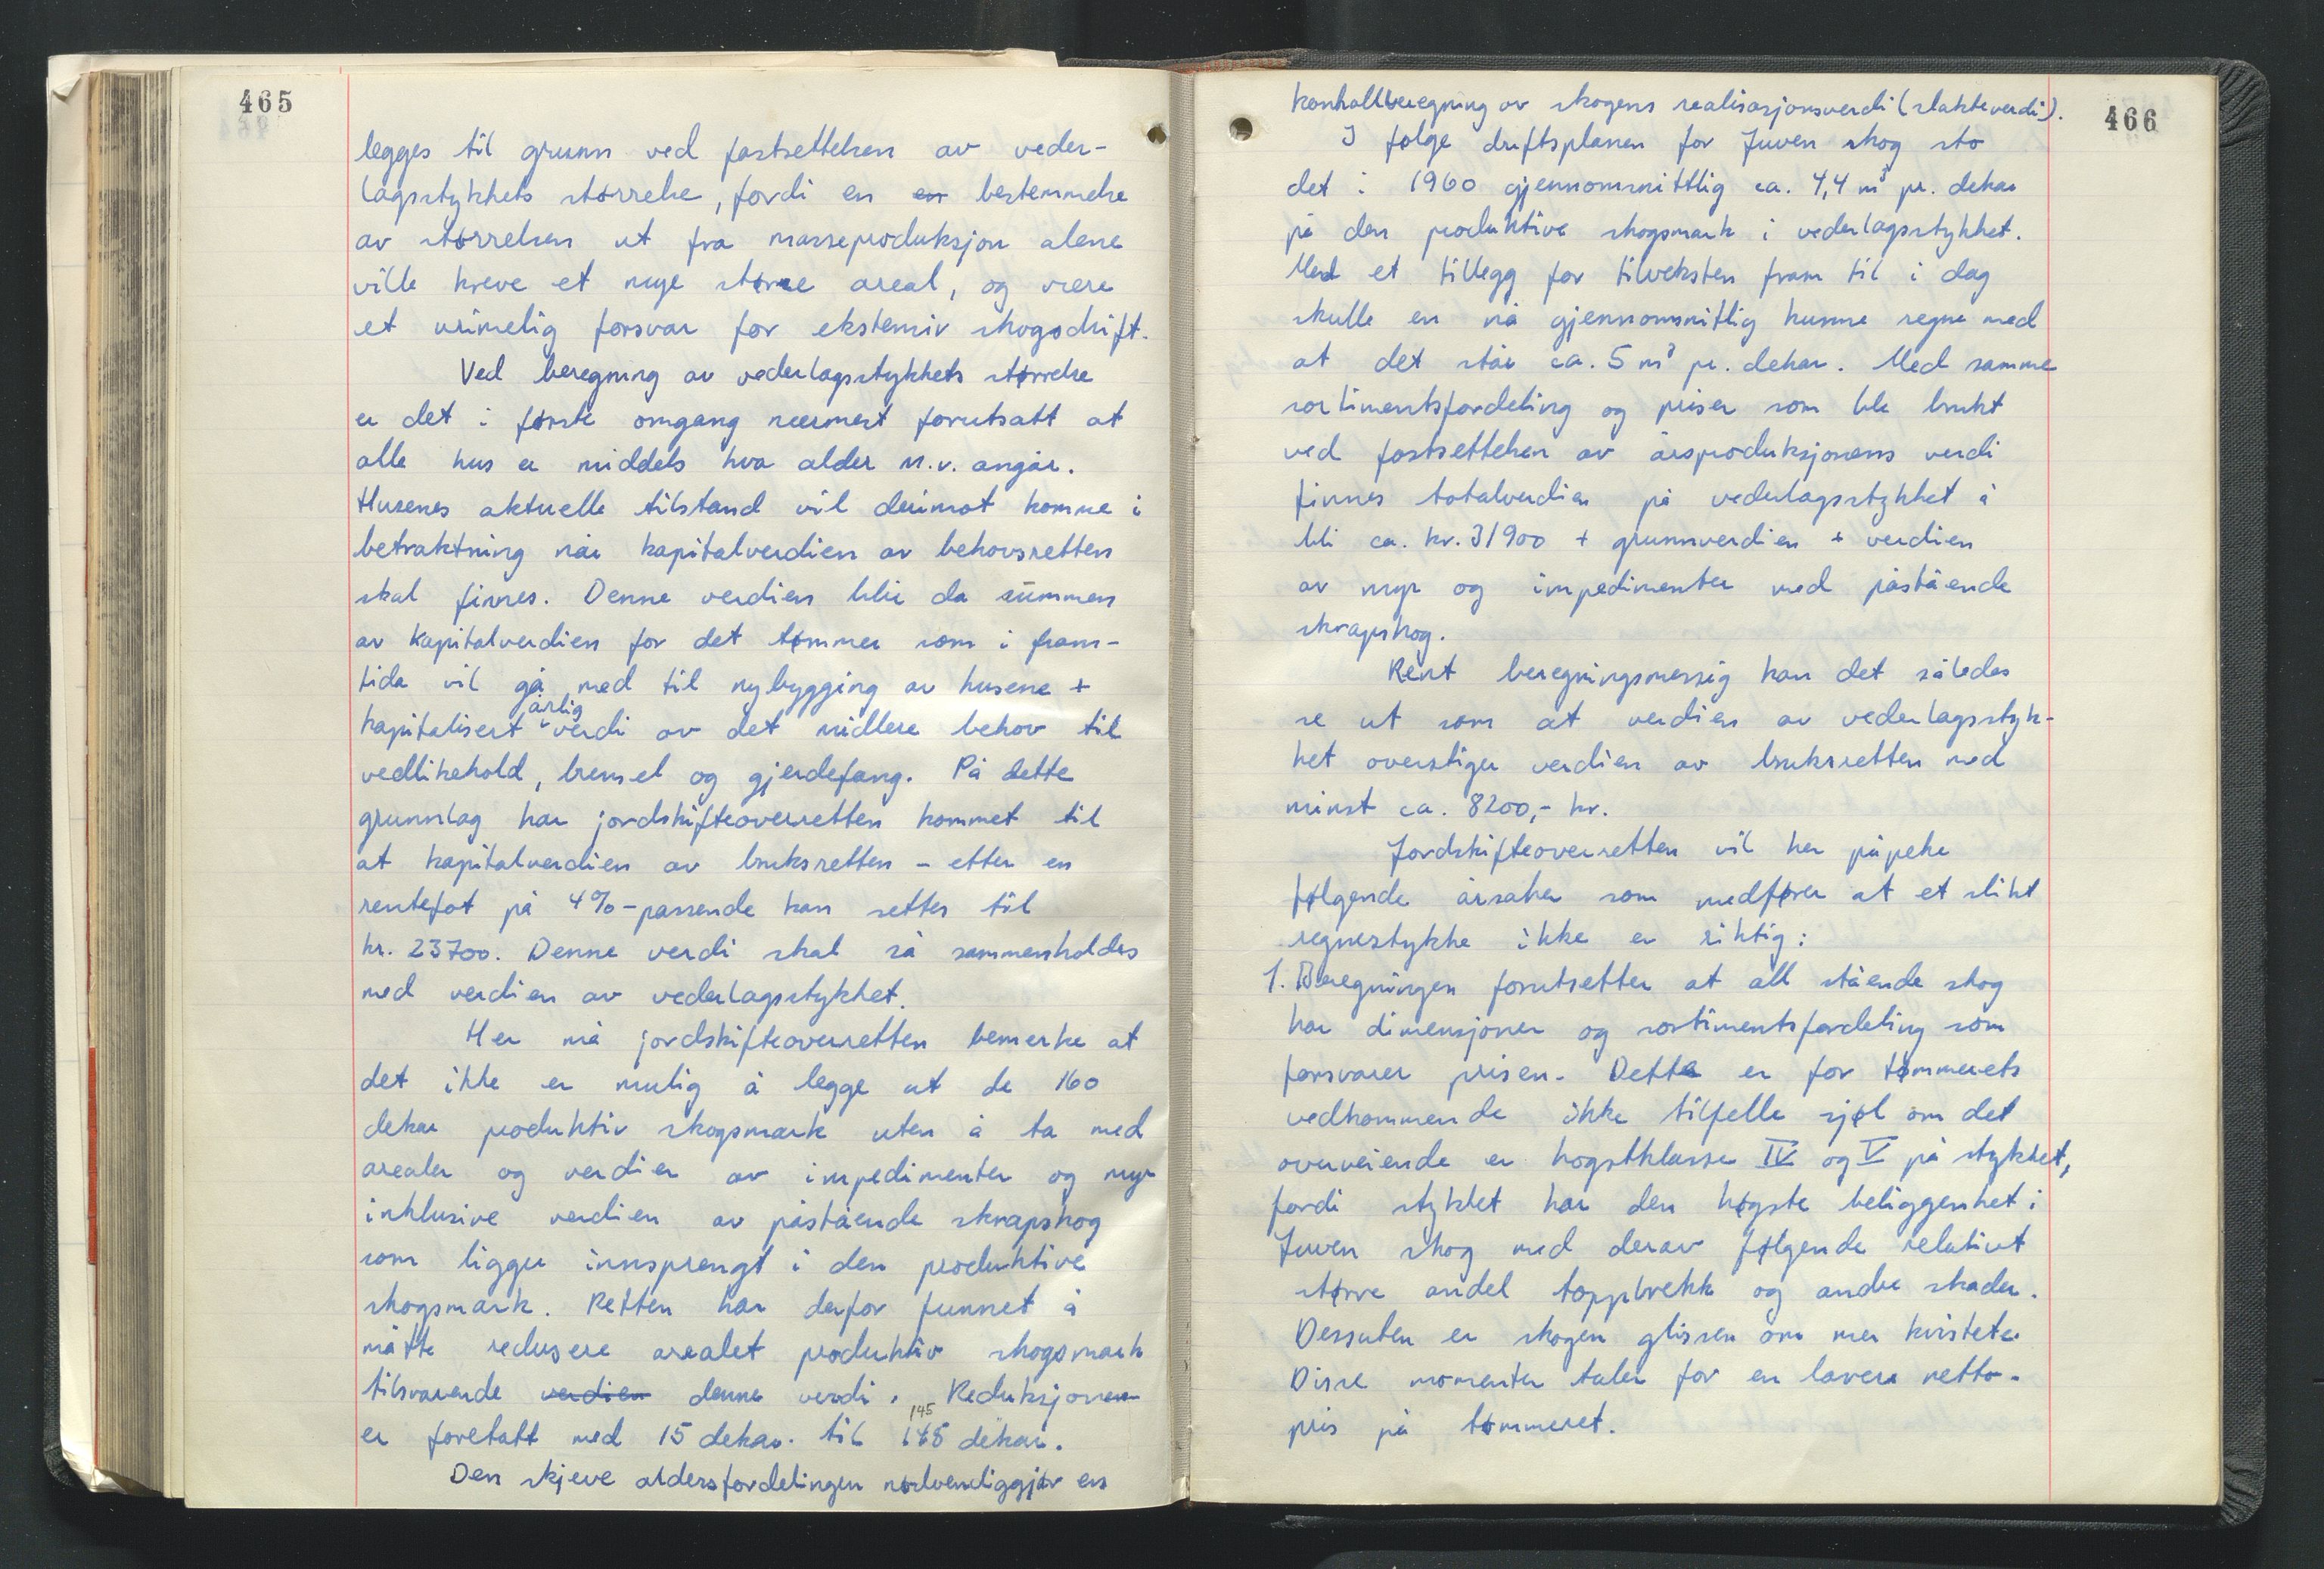 465
legges til grunn ved fastsettelsen av veder-
lagsstykkets størrelse, fordi en en bestemmelse
av størrelsen ut fra masseproduksjon alene
ville kreve et mye større areal, og være
et urimelig forsvar for ekstensiv skogsdrift.
Ved beregning av vederlagsstykkets størrelse
er det i første omgang nærmest forutsatt at
alle hus er middels hva alder m.v. angår.
Husenes aktuelle tilstand vil derimot komme i
betraktning når kapitalverdien av behovsretten
skal finnes. Denne verdien blir da summen
av kapitalverdien for det tømmer som i fram-
tida vil gå med til nybygging av husene +
kapitalisert årlig verdi av det midlere behov til
vedlikehold, brensel og gjerdefang. På dette
grunnlag har jordskifteoverretten kommet til
at kapitalverdien av bruksretten - etter en
rentefot på 4% - passende kan settes til
kr. 23700. Denne verdi skal så sammenholdes
med verdien av vederlagsstykket.
Her må jordskifteoverretten bemerke at
det ikke er mulig å legge ut de 160
dekar produktiv skogsmark uten å ta med
arealer og verdier av impedimenter og myr
inklusive verdien av påstående skrapskog
som ligger innsprengt i den produktive
skogsmark. Retten har derfor funnet å
måtte redusere arealet produktiv skogsmark
tilsvarende verdien denne verdi. Reduksjonen
er foretatt med 15 dekar. til 145 dekar.
Den skjeve aldersfordelingen nødvendiggjør en
466
kontrollberegning av skogens realisasjonsverdi (slakteverdi).
I følge driftsplanen for Juven skog sto
det i 1960 gjennomsnittlig ca. 4,4 m³ pr. dekar
på den produktive skogsmark i vederlagsstykket.
Med et tillegg for tilveksten fram til i dag
skulle en nå gjennomsnitlig kunne regne med
at det står ca. 5 m³ pr. dekar. Med samme
sortimentsfordeling og priser som ble brukt
ved fastsettelsen av årsproduksjonens verdi
finnes totalverdien på vederlagsstykket å
bli ca. kr. 31900 + grunnverdien + verdien
av myr og impedimenter med påstående
skrapskog.
Rent beregningsmessig kan det således
se ut som at verdien av vederlagsstyk-
ket overstiger verdien av bruksretten med
minst ca. 8200,- kr.
Jordskifteoverretten vil her påpeke
følgende årsaker som medfører at et slikt
regnestykke ikke er riktig:
1. Beregningen forutsetter at all stående skog
har dimensjoner og sortimentsfordeling som
forsvarer prisen. Dette er for tømmerets
vedkommende ikke tilfelle sjøl om det
overveiende er hogstklasse IV og V på stykket,
fordi stykket har den høgste beliggenhet i
Juven skog med derav følgende relativt
større andel toppbrekk og andre skader.
Dessuten er skogen glissen om mer kvistete.
Disse momenter taler for en lavere netto-
pris på tømmeret.